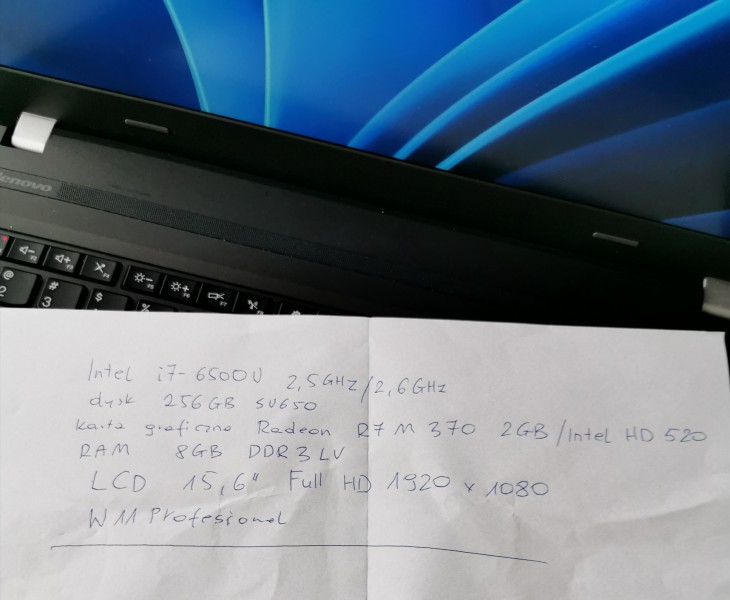 lenovo
@
2
#
3
$
%
Intel i7-6500U 2,5GHz/2,6GHz
dysk 256GB SU650
karta graficzna Radeon R7 M 370 2GB/Intel HD 520
RAM 8GB DDR3 LV
LCD 15,6" Full HD 1920 x 1080
W11 Profesional